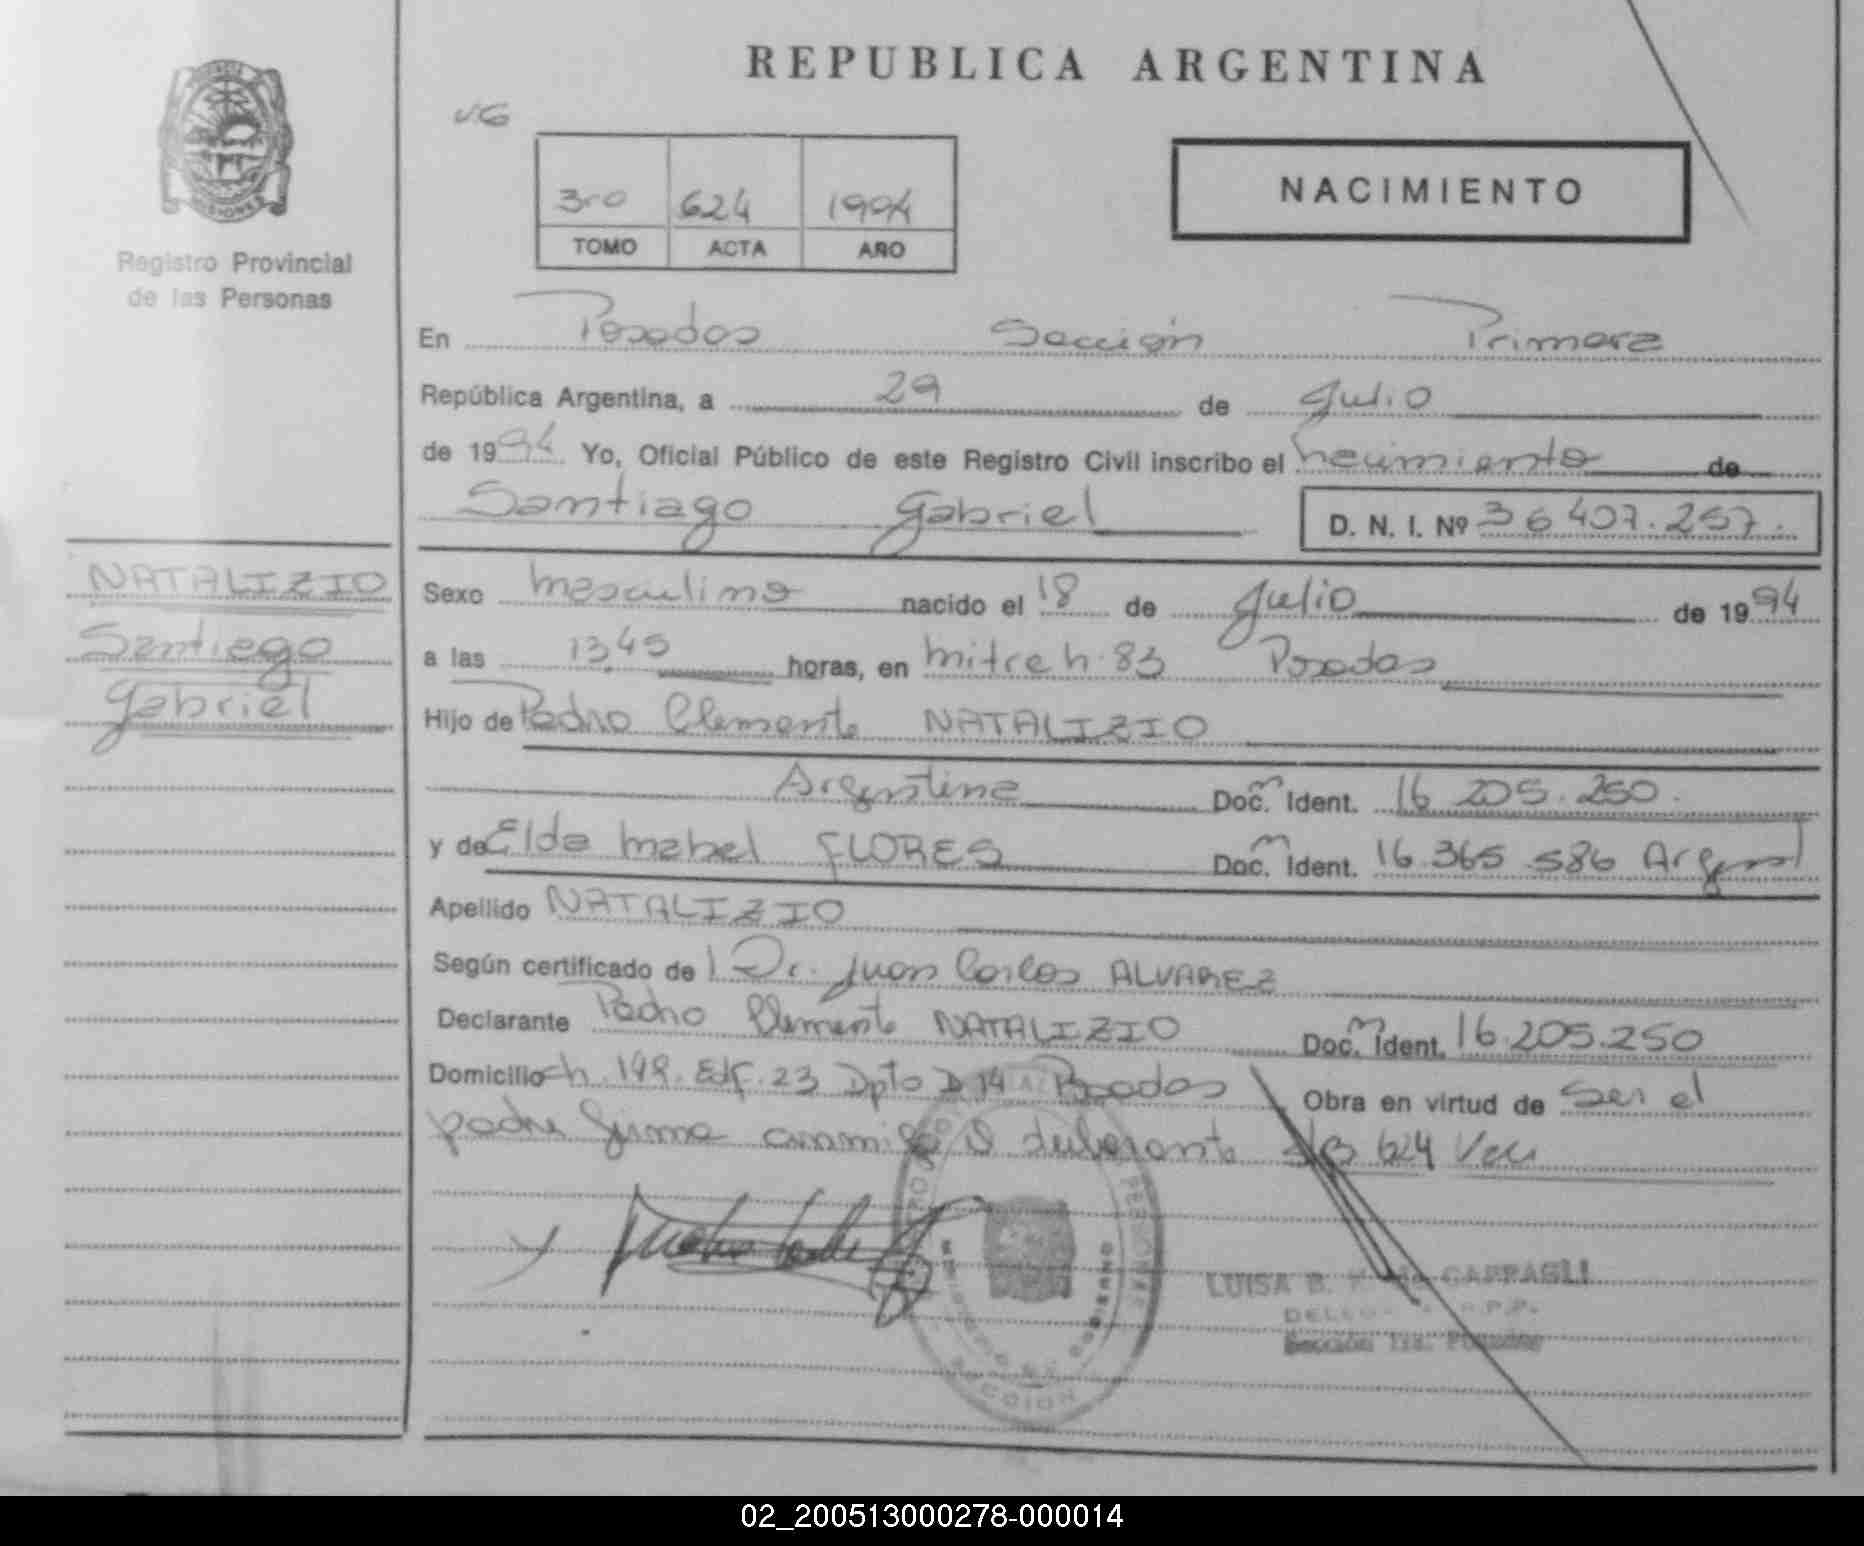 REPUBLICA ARGENTINA
NACIMIENTO
3ro 624 1994
TOMO ACTA AÑO
MISIONES
Registro Provincial
de las Personas
En Posadas Sección Primera
República Argentina, a 29 de Julio
de 1994 Yo, Oficial Público de este Registro Civil inscribo el nacimiento de
Santiago Gabriel D. N. I. Nº 36 407.257.
NATALIZIO
Santiago
Gabriel
Sexo masculino nacido el 18 de Julio de 1994
a las 13,45 horas, en mitre h. 83 Posadas
Hijo de Pedro Clemente NATALIZIO
Argentina Doc. Ident. 16 205.250.
y de Elda Mabel FLORES Doc. Ident. 16.365 586 Argent
Apellido NATALIZIO
Según certificado de Dr. Juan Carlos ALVAREZ
Declarante Pedro Clemente NATALIZIO Doc. Ident. 16.205.250
Domicilio ch. 149. Edf. 23 Dpto D 14 Posadas Obra en virtud de ser el
padre firma conmigo el declarante 624
LUISA B.
Sección 1ra. Posadas
02_200513000278-000014